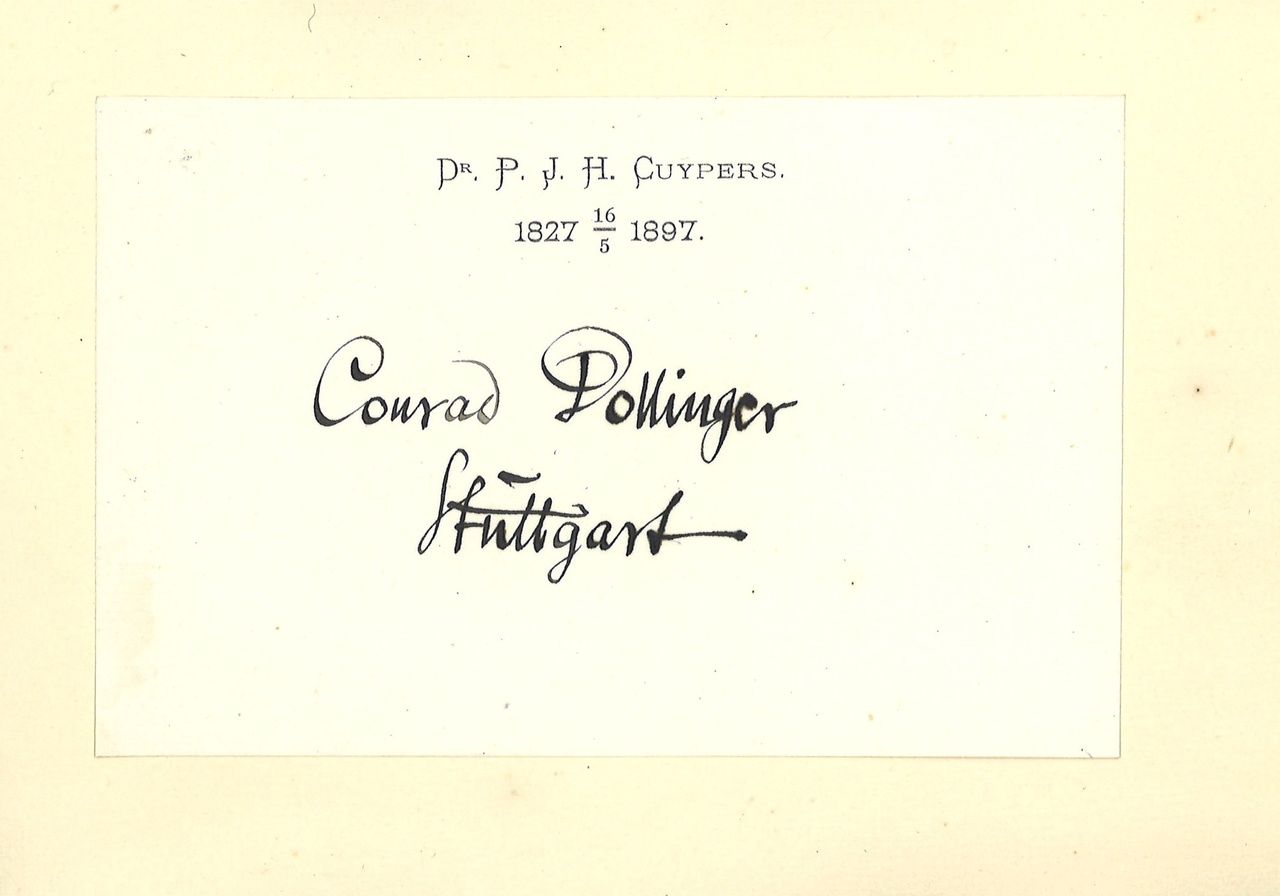 DR. P. J. H. CUYPERS.
1827 16/5 1897.
Conrad Dollinger
Stuttgart